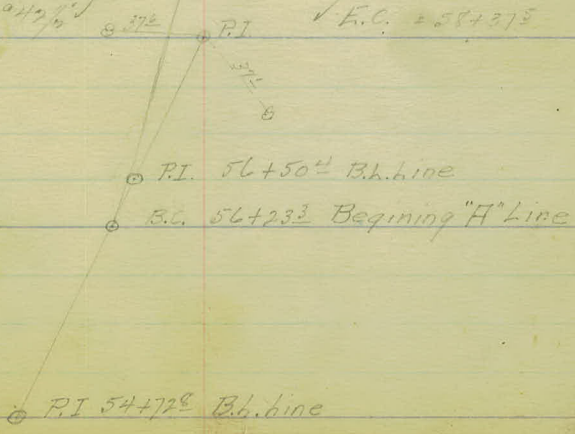 37⁶ P.I. ✓ E.C. = 58+37⁵
P.I. 56+50⁴ B.L. Line
B.C. 56+23³ Begining "A" Line
P.I 54+72⁸ B.L. Line